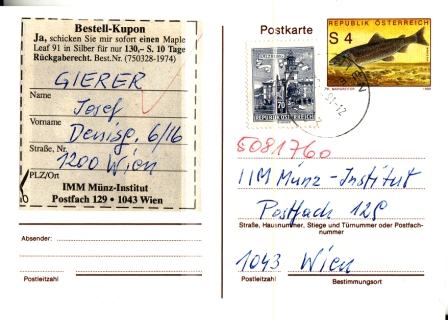 Bestell-Kupon
Ja, schicken Sie mir sofort einen Maple
Leaf 91 in Silber für nur 130,– S. 10 Tage
Rückgaberecht. Best.Nr. (750328-1974)
GIERER
Name
Josef
Vorname
Denisg. 6/16
Straße, Nr.
1200 Wien
PLZ/Ort
IMM Münz-Institut
Postfach 129 • 1043 Wien
Absender:
Postleitzahl
Postkarte
REPUBLIK ÖSTERREICH
S 4
70
REPUBLIK ÖSTERREICH
5081760
IIM Münz-Institut
Postfach 129
Straße, Hausnummer, Stiege und Türnummer oder Postfach-
nummer
1043 Wien
Postleitzahl
Bestimmungsort